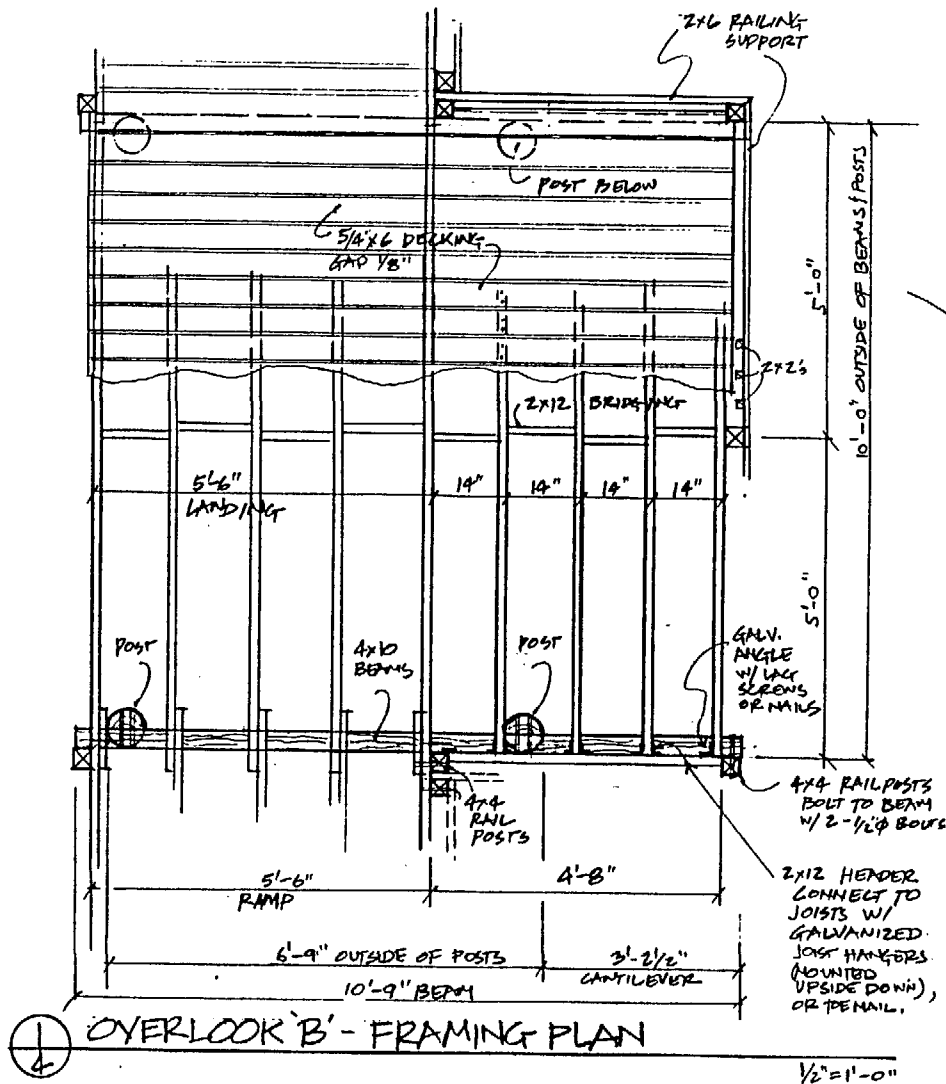 2x6 RAILING
SUPPORT
POST BELOW
5/4"x6 DECKING
GAP 1/8"
5'-0"
10'-0" OUTSIDE OF BEAMS & POSTS
2x2's
2x12 BRIDGING
5'-6"
LANDING
14"
14"
14"
14"
5'-0"
POST
4x10
BEAMS
POST
GALV.
ANGLE
W/ LAG
SCREWS
OR NAILS
4x4
RAIL
POSTS
4x4 RAILPOSTS
BOLT TO BEAM
W/ 2-1/2"φ BOLTS
5'-6"
RAMP
4'-8"
2x12 HEADER
CONNECT TO
JOISTS W/
GALVANIZED
JOIST HANGERS
(MOUNTED
UPSIDE DOWN),
OR TOENAIL.
6'-9" OUTSIDE OF POSTS
3'-2 1/2"
CANTILEVER
10'-9" BEAM
1
4
OVERLOOK 'B' - FRAMING PLAN
1/2"=1'-0"